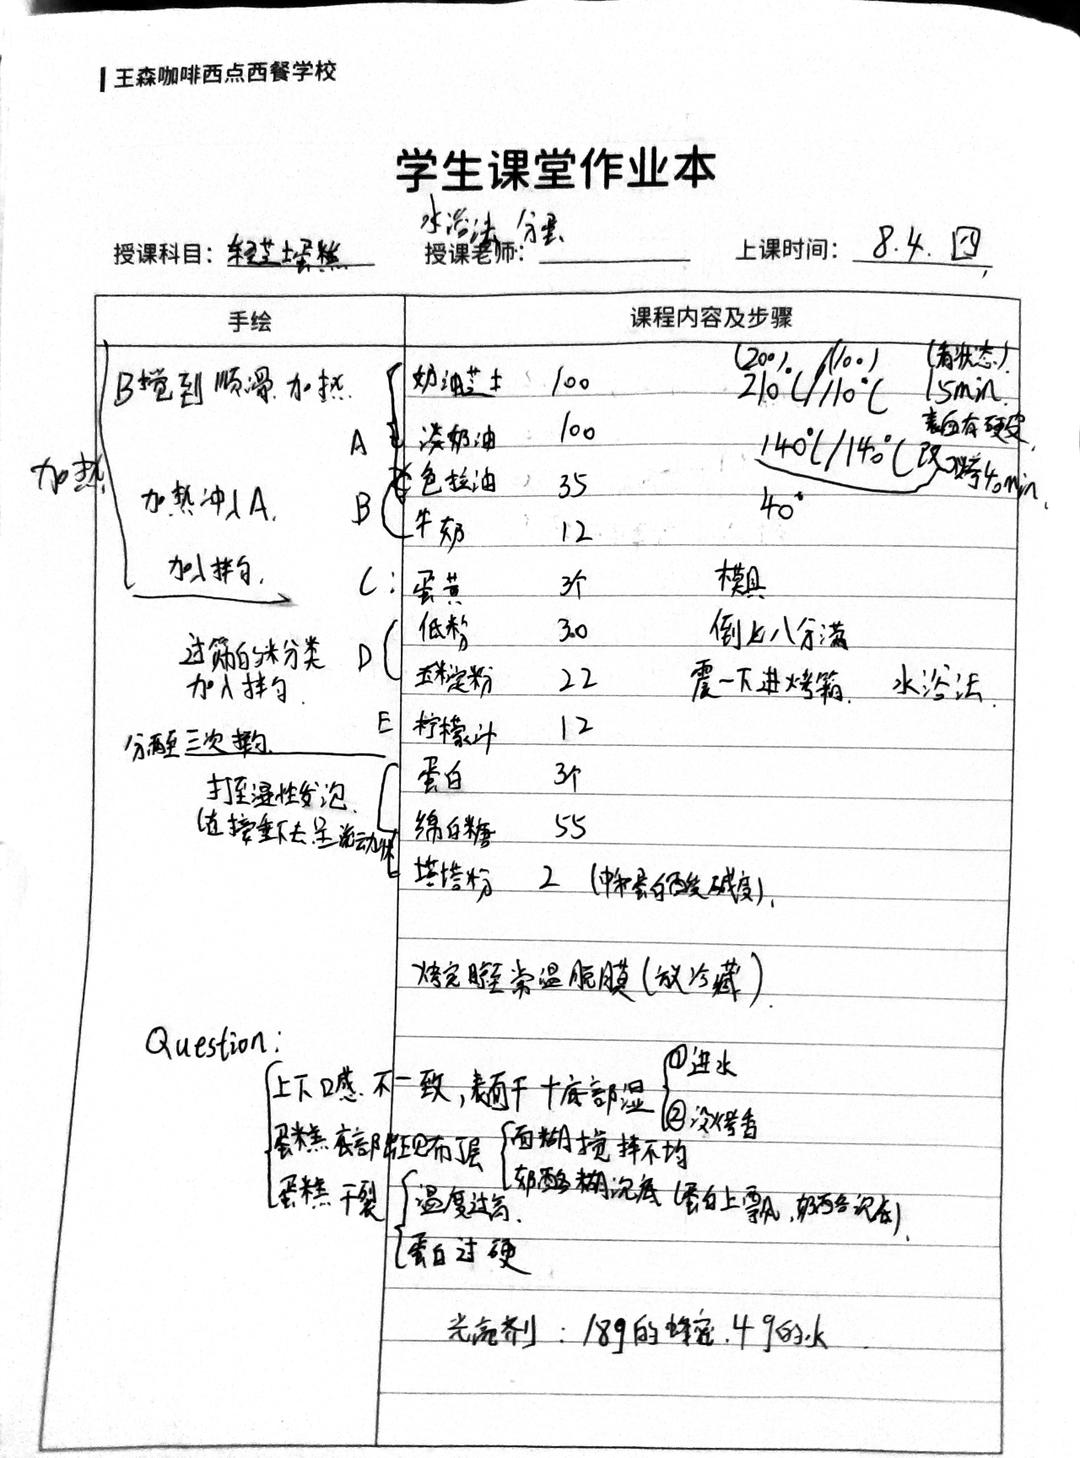 王森咖啡西点西餐学校
学生课堂作业本
水浴法 分蛋
授课科目：轻芝士蛋糕 授课老师： 上课时间：8.4. 四
手绘 课程内容及步骤
(200) (100) (看状态)
B搅到顺滑 加热 奶油芝士 100 210℃/110℃ 15min.
表面有硬皮,
A 淡奶油 100 140℃/140℃ 改 烤40min,
加热 色拉油 35
加热冲入A. B 牛奶 12 40°
加入拌匀.
C: 蛋黄 3个 模具
低粉 30 倒七八分满
过筛的粉类 D
加入拌匀. 玉米淀粉 22 震一下进烤箱. 水浴法.
E 柠檬汁 12
分三次
蛋白 3个
打至湿性发泡.
(直接垂下去呈流动状 绵白糖 55
塔塔粉 2 (中和蛋白的酸碱度).
烤完晾至常温脱膜(放冷藏).
Question:
上下口感不一致,表面干+底部湿 ①进水
②没烤香
蛋糕底部出现布丁层 面糊搅拌不均
奶酪糊沉底 (蛋白上飘,奶酪沉底).
蛋糕干裂 温度过高.
蛋白过硬
光亮剂：18g的蜂蜜.4g的水